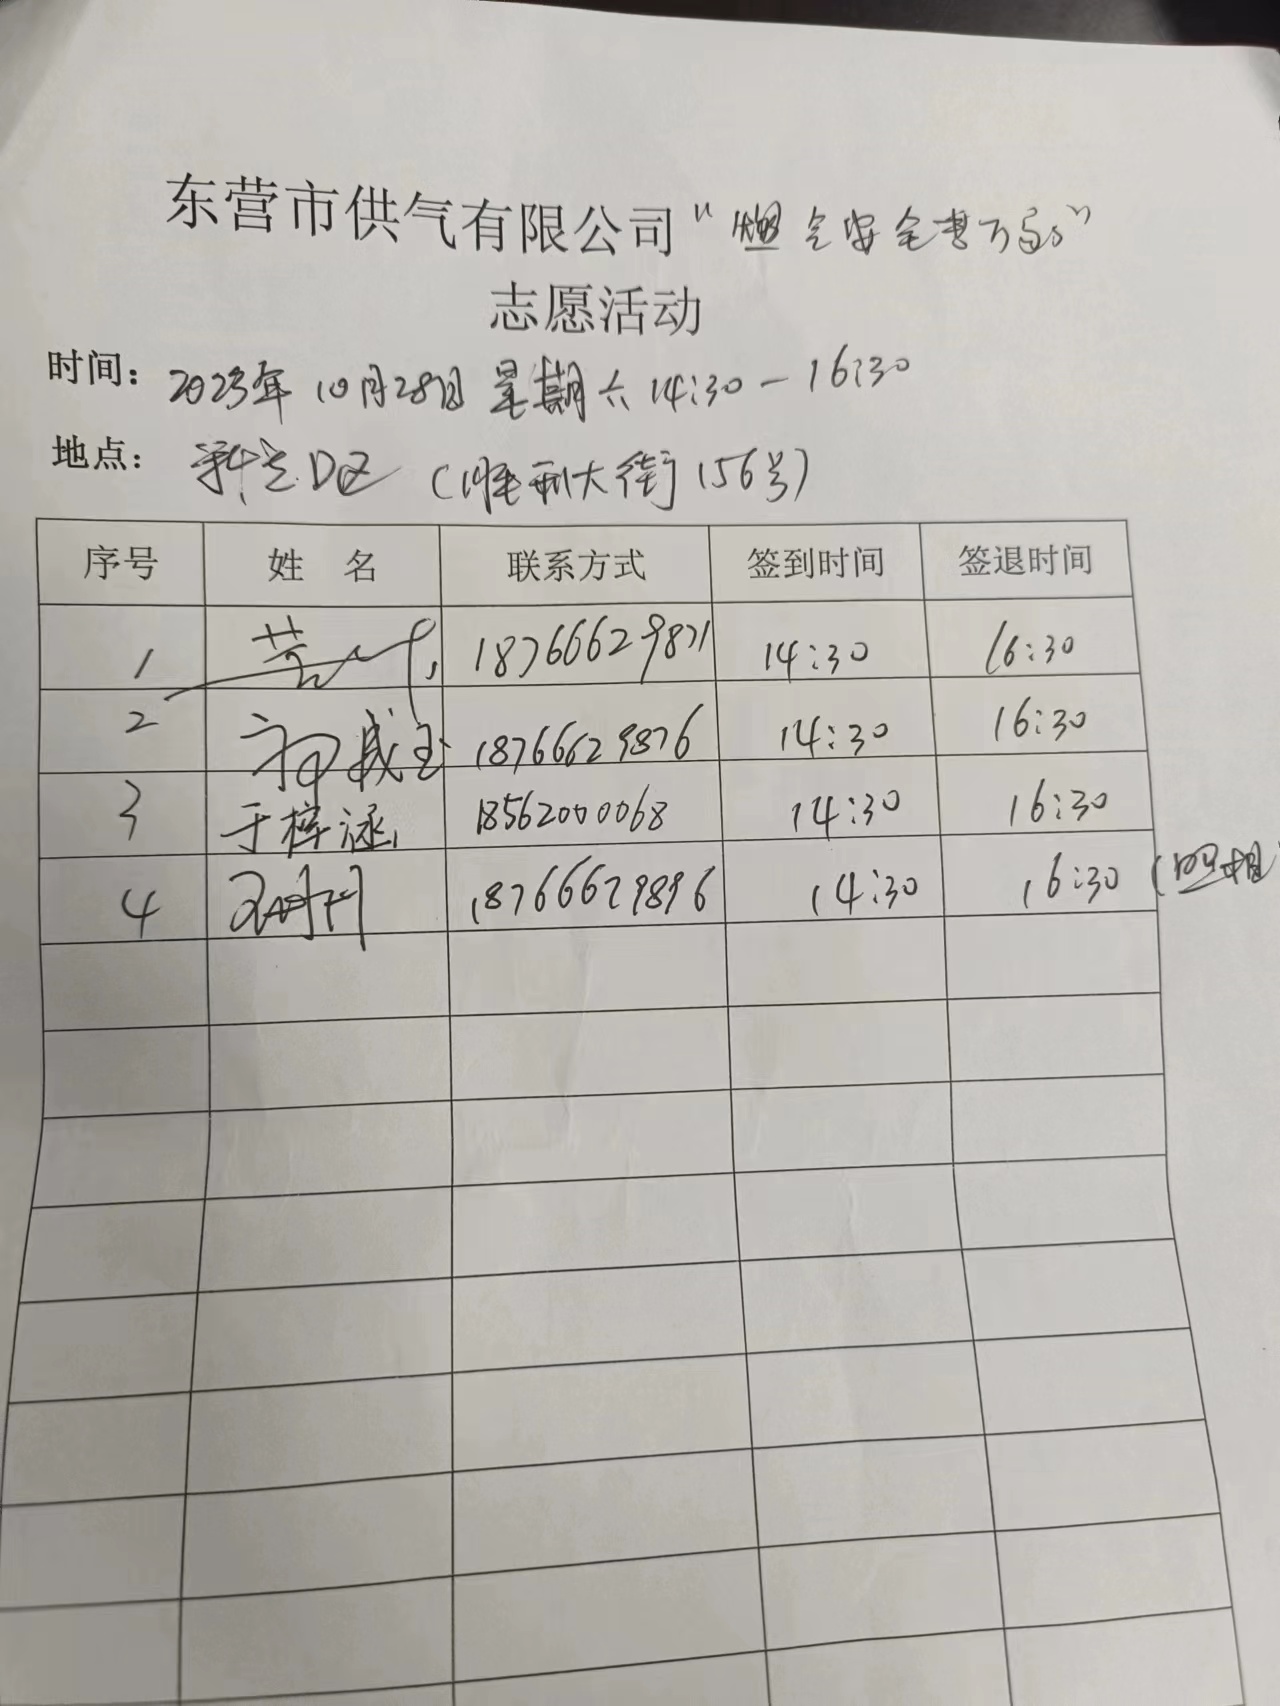 东营市供气有限公司“燃气安全进万家”
志愿活动
时间：2023年10月28日 星期六 14:30-16:30
地点： D区（胜利大街156号）
序号 姓名 联系方式 签到时间 签退时间
1 18766629871 14:30 16:30
2 18766629876 14:30 16:30
3 于梓涵 18562000068 14:30 16:30
4 18766629896 14:30 16:30（照相